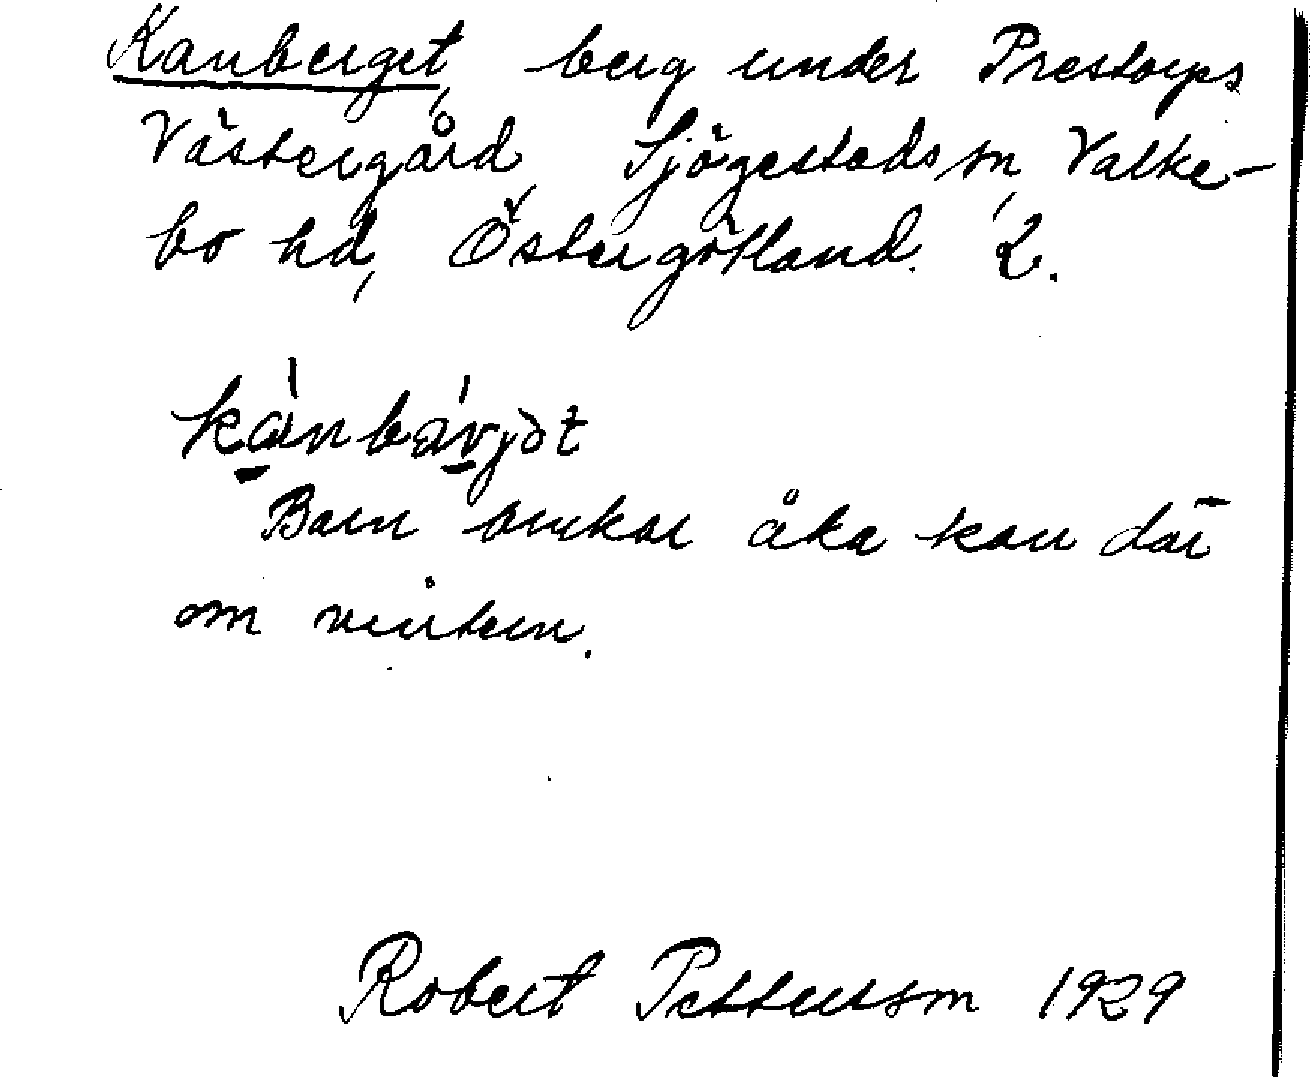 Kanberget, berg under Prestorps
Västergård, Sjögestads sn, Valke-
bo hd, Östergötland. 2.
kànbárjət
Barn brukar åka kana där
om vintern.
Robert Pettersson 1929